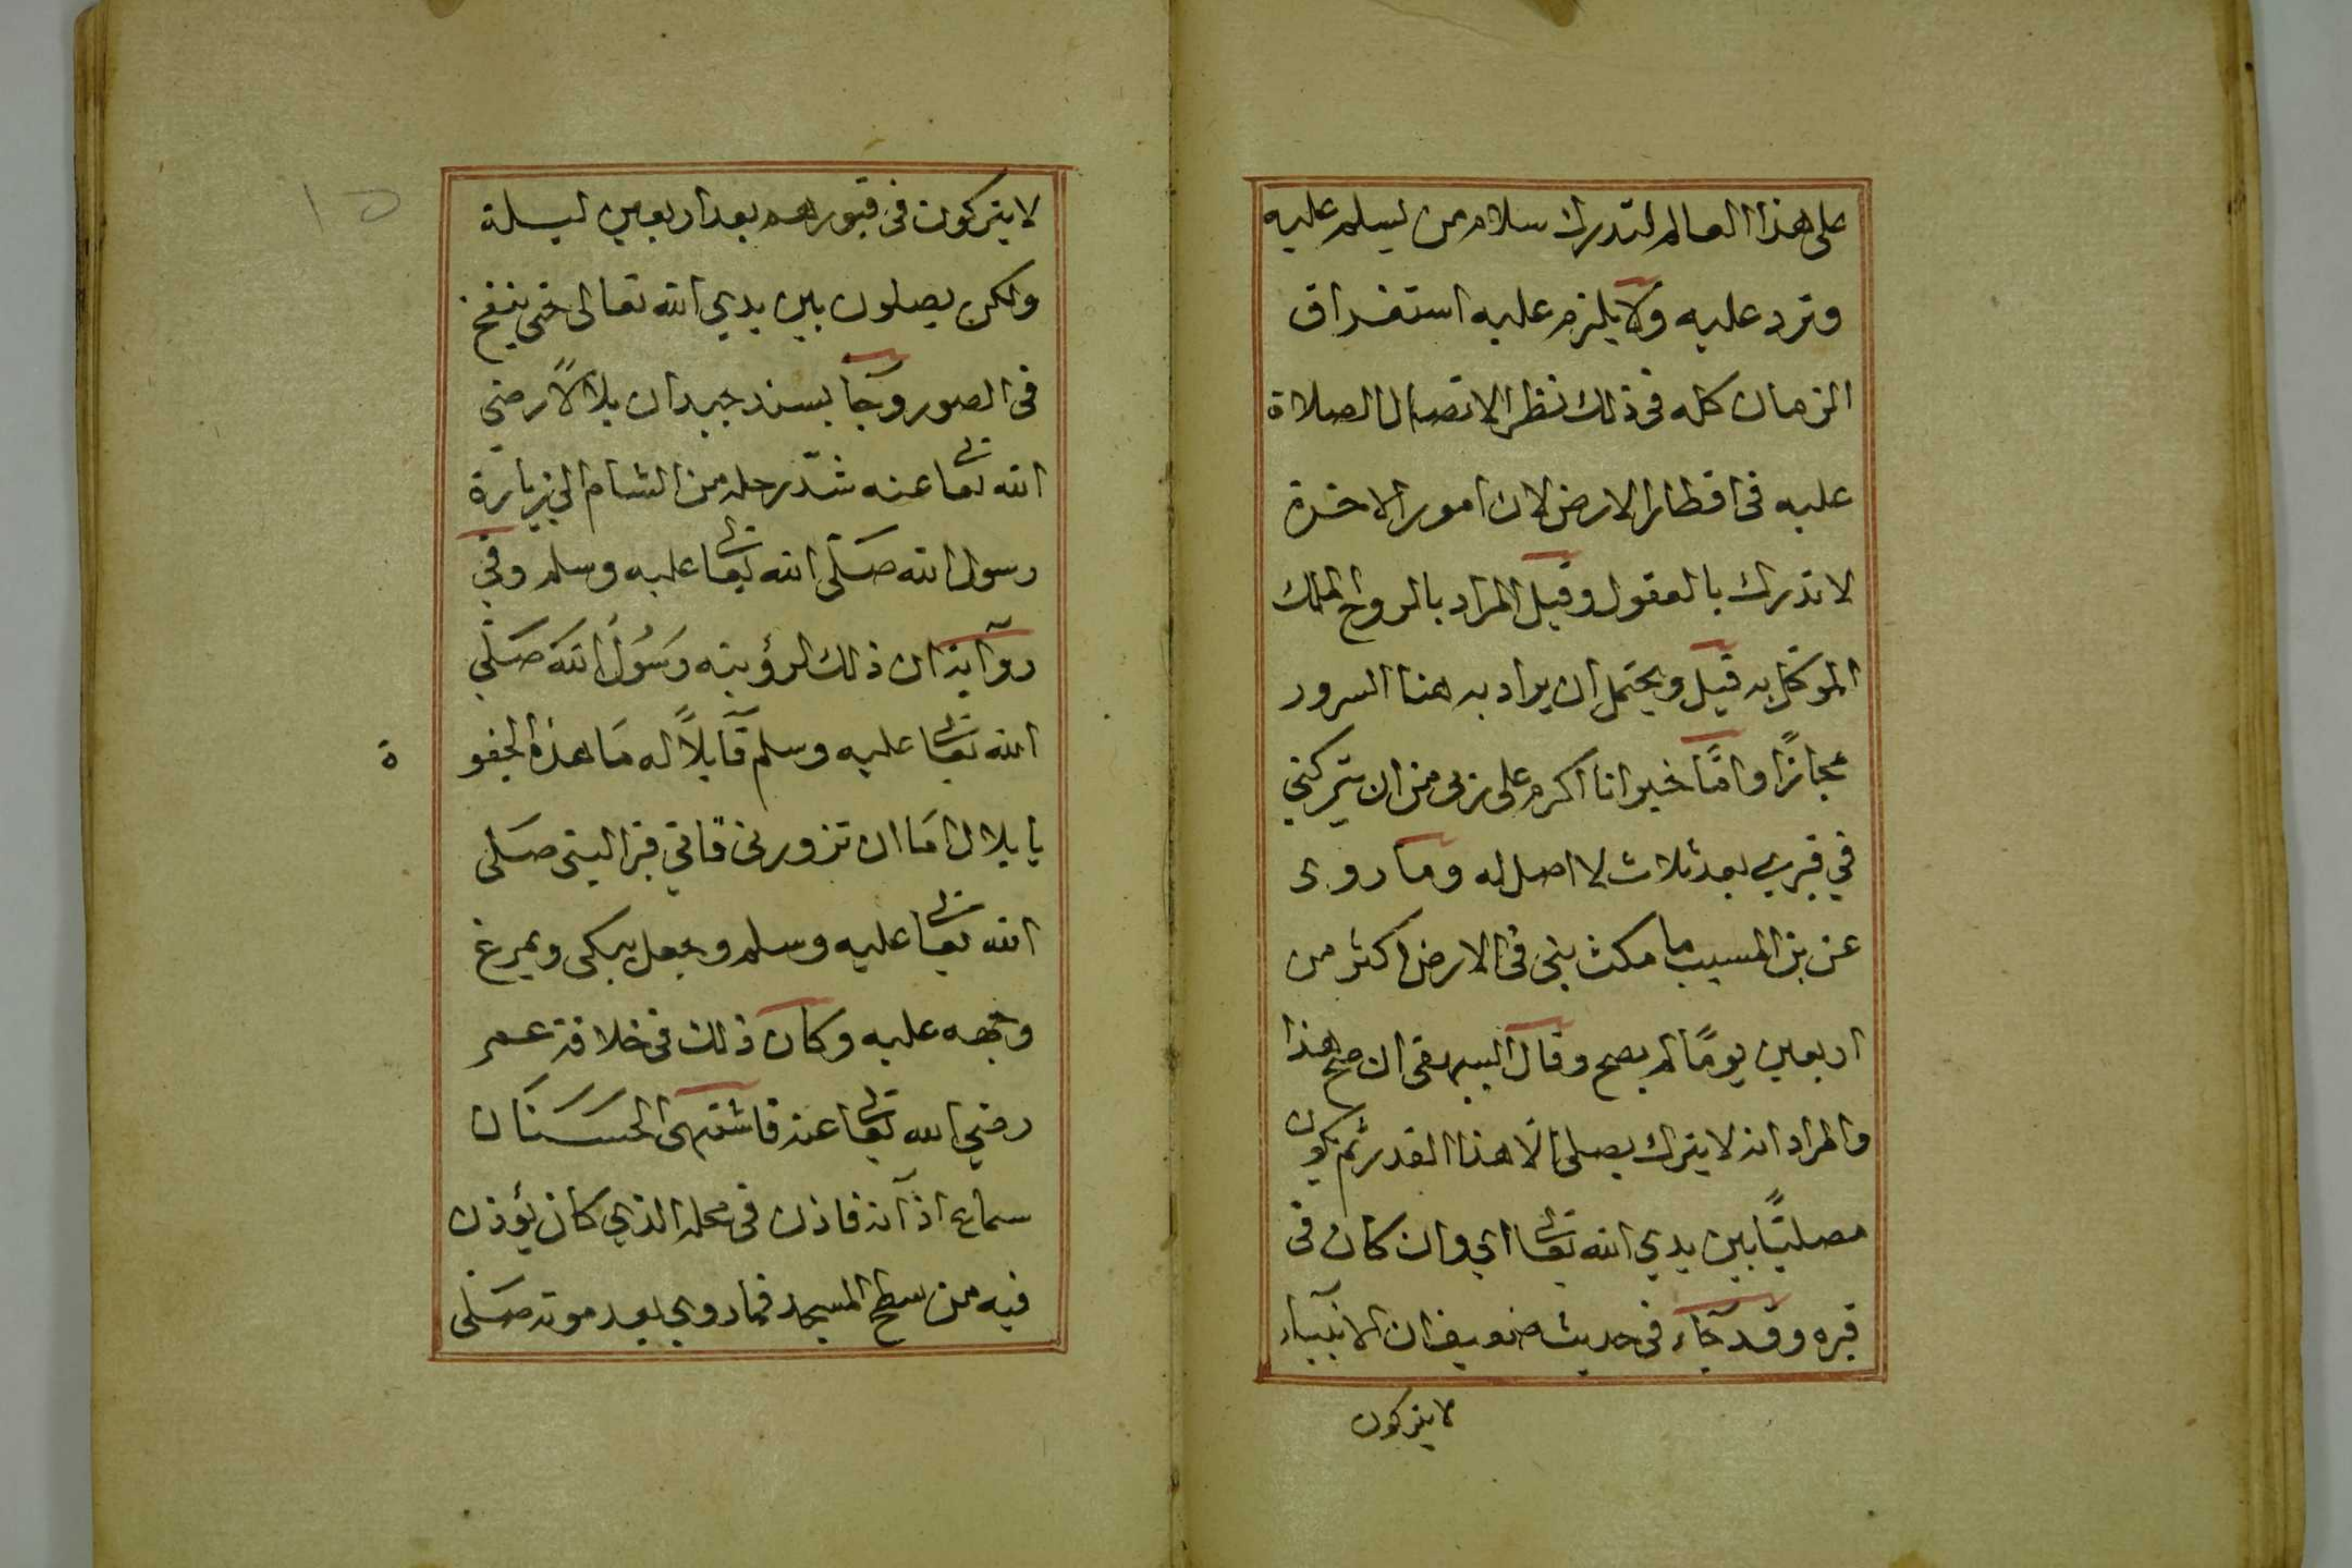 على هذا العالم لتدرك سلام من يسلم عليه
وترد عليه ولا يلزم عليه استغراق
الزمان كله في ذلك نظرا لاتصال الصلاة
عليه في اقطار الارض لان امور الاخرة
لا تدرك بالعقول وقيل المراد بالروح الملك
الموكل به قيل ويحتمل ان يراد به هنا السرور
مجازًا وامّا خبر انا اكرم على ربى من ان يتركني
في قبري بعد ثلاث لا اصل له وما روى
عن بن المسيب ما مكث بنى في الارض اكثر من
اربعين يومًا لم يصح وقال البيهقى ان صح هذا
والمراد انه لا يترك يصلى الّا هذا القدر ثم يكون
مصليًا بين يدي الله تعالى اي وان كان في
قبره وقد جآء في حديث ضعيف ان الانبيآء
لا يتركون
١٥
لا يتركون في قبورهم بعد اربعين ليلة
ولكن يصلون بين يدي الله تعالى حتى ينفخ
في الصور وجآ بسند جيد ان بلالًا رضي
الله تعالى عنه شدّ رحله من الشام الى زيارة
رسول الله صَلّى الله تعالى عليه وسلم وفي
روآية ان ذلك لرؤيته رَسُولُ اللهَ صَلّى
الله تعالى عليه وسلم قآيلًا له مَا هذه الجفو
ة
يا بلال اَمَا ان تزورنى فاتي قبر النبى صَلى
الله تعالى عليه وسلم وجعل يبكى ويمرغ
وجهه عليه وكان ذلك في خلافة عمر
رضي الله تعالى عنه فاشتهى الحَسَنَان
سماع اذآنه فاذن في محله الذي كان يؤذن
فيه من سطح المسجد فما روي بعد موته صَلّى